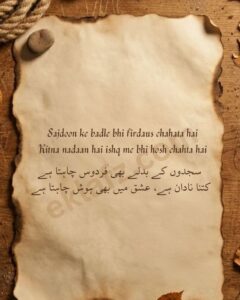 Sajdoon ke badle bhi firdaus chahata hai
Kitna nadaan hai ishq me bhi hosh chahta hai
سجدوں کے بدلے بھی فردوس چاہتا ہے
کتنا نادان ہے، عشق میں بھی ہوش چاہتا ہے